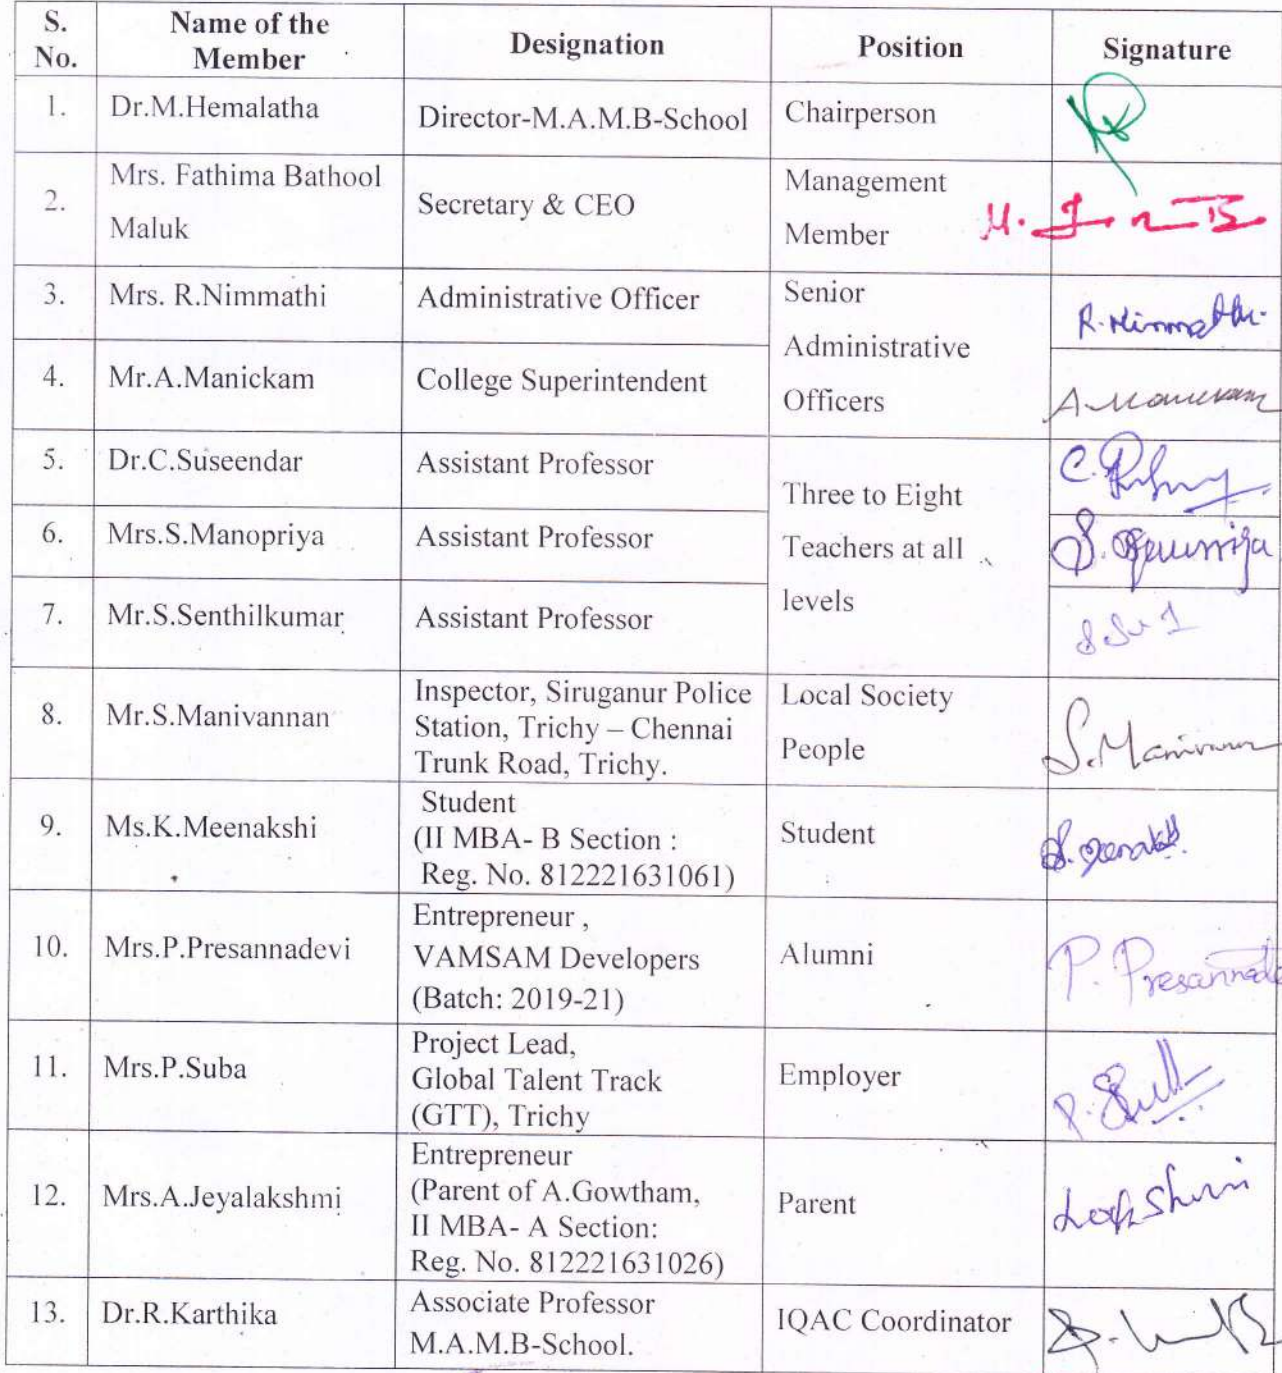 S. No. Name of the Member Designation Position Signature
1. Dr.M.Hemalatha Director-M.A.M.B-School Chairperson
2. Mrs. Fathima Bathool Maluk Secretary & CEO Management Member
3. Mrs. R.Nimmathi Administrative Officer Senior Administrative Officers R. Nimmathi.
4. Mr.A.Manickam College Superintendent A. Manickam
5. Dr.C.Suseendar Assistant Professor Three to Eight Teachers at all levels
6. Mrs.S.Manopriya Assistant Professor
7. Mr.S.Senthilkumar Assistant Professor
8. Mr.S.Manivannan Inspector, Siruganur Police
Station, Trichy – Chennai
Trunk Road, Trichy. Local Society People S. Manivannan
9. Ms.K.Meenakshi Student
(II MBA- B Section :
Reg. No. 812221631061) Student
10. Mrs.P.Presannadevi Entrepreneur ,
VAMSAM Developers
(Batch: 2019-21) Alumni P. Presannade
11. Mrs.P.Suba Project Lead,
Global Talent Track
(GTT), Trichy Employer
12. Mrs.A.Jeyalakshmi Entrepreneur
(Parent of A.Gowtham,
II MBA- A Section:
Reg. No. 812221631026) Parent
13. Dr.R.Karthika Associate Professor
M.A.M.B-School. IQAC Coordinator